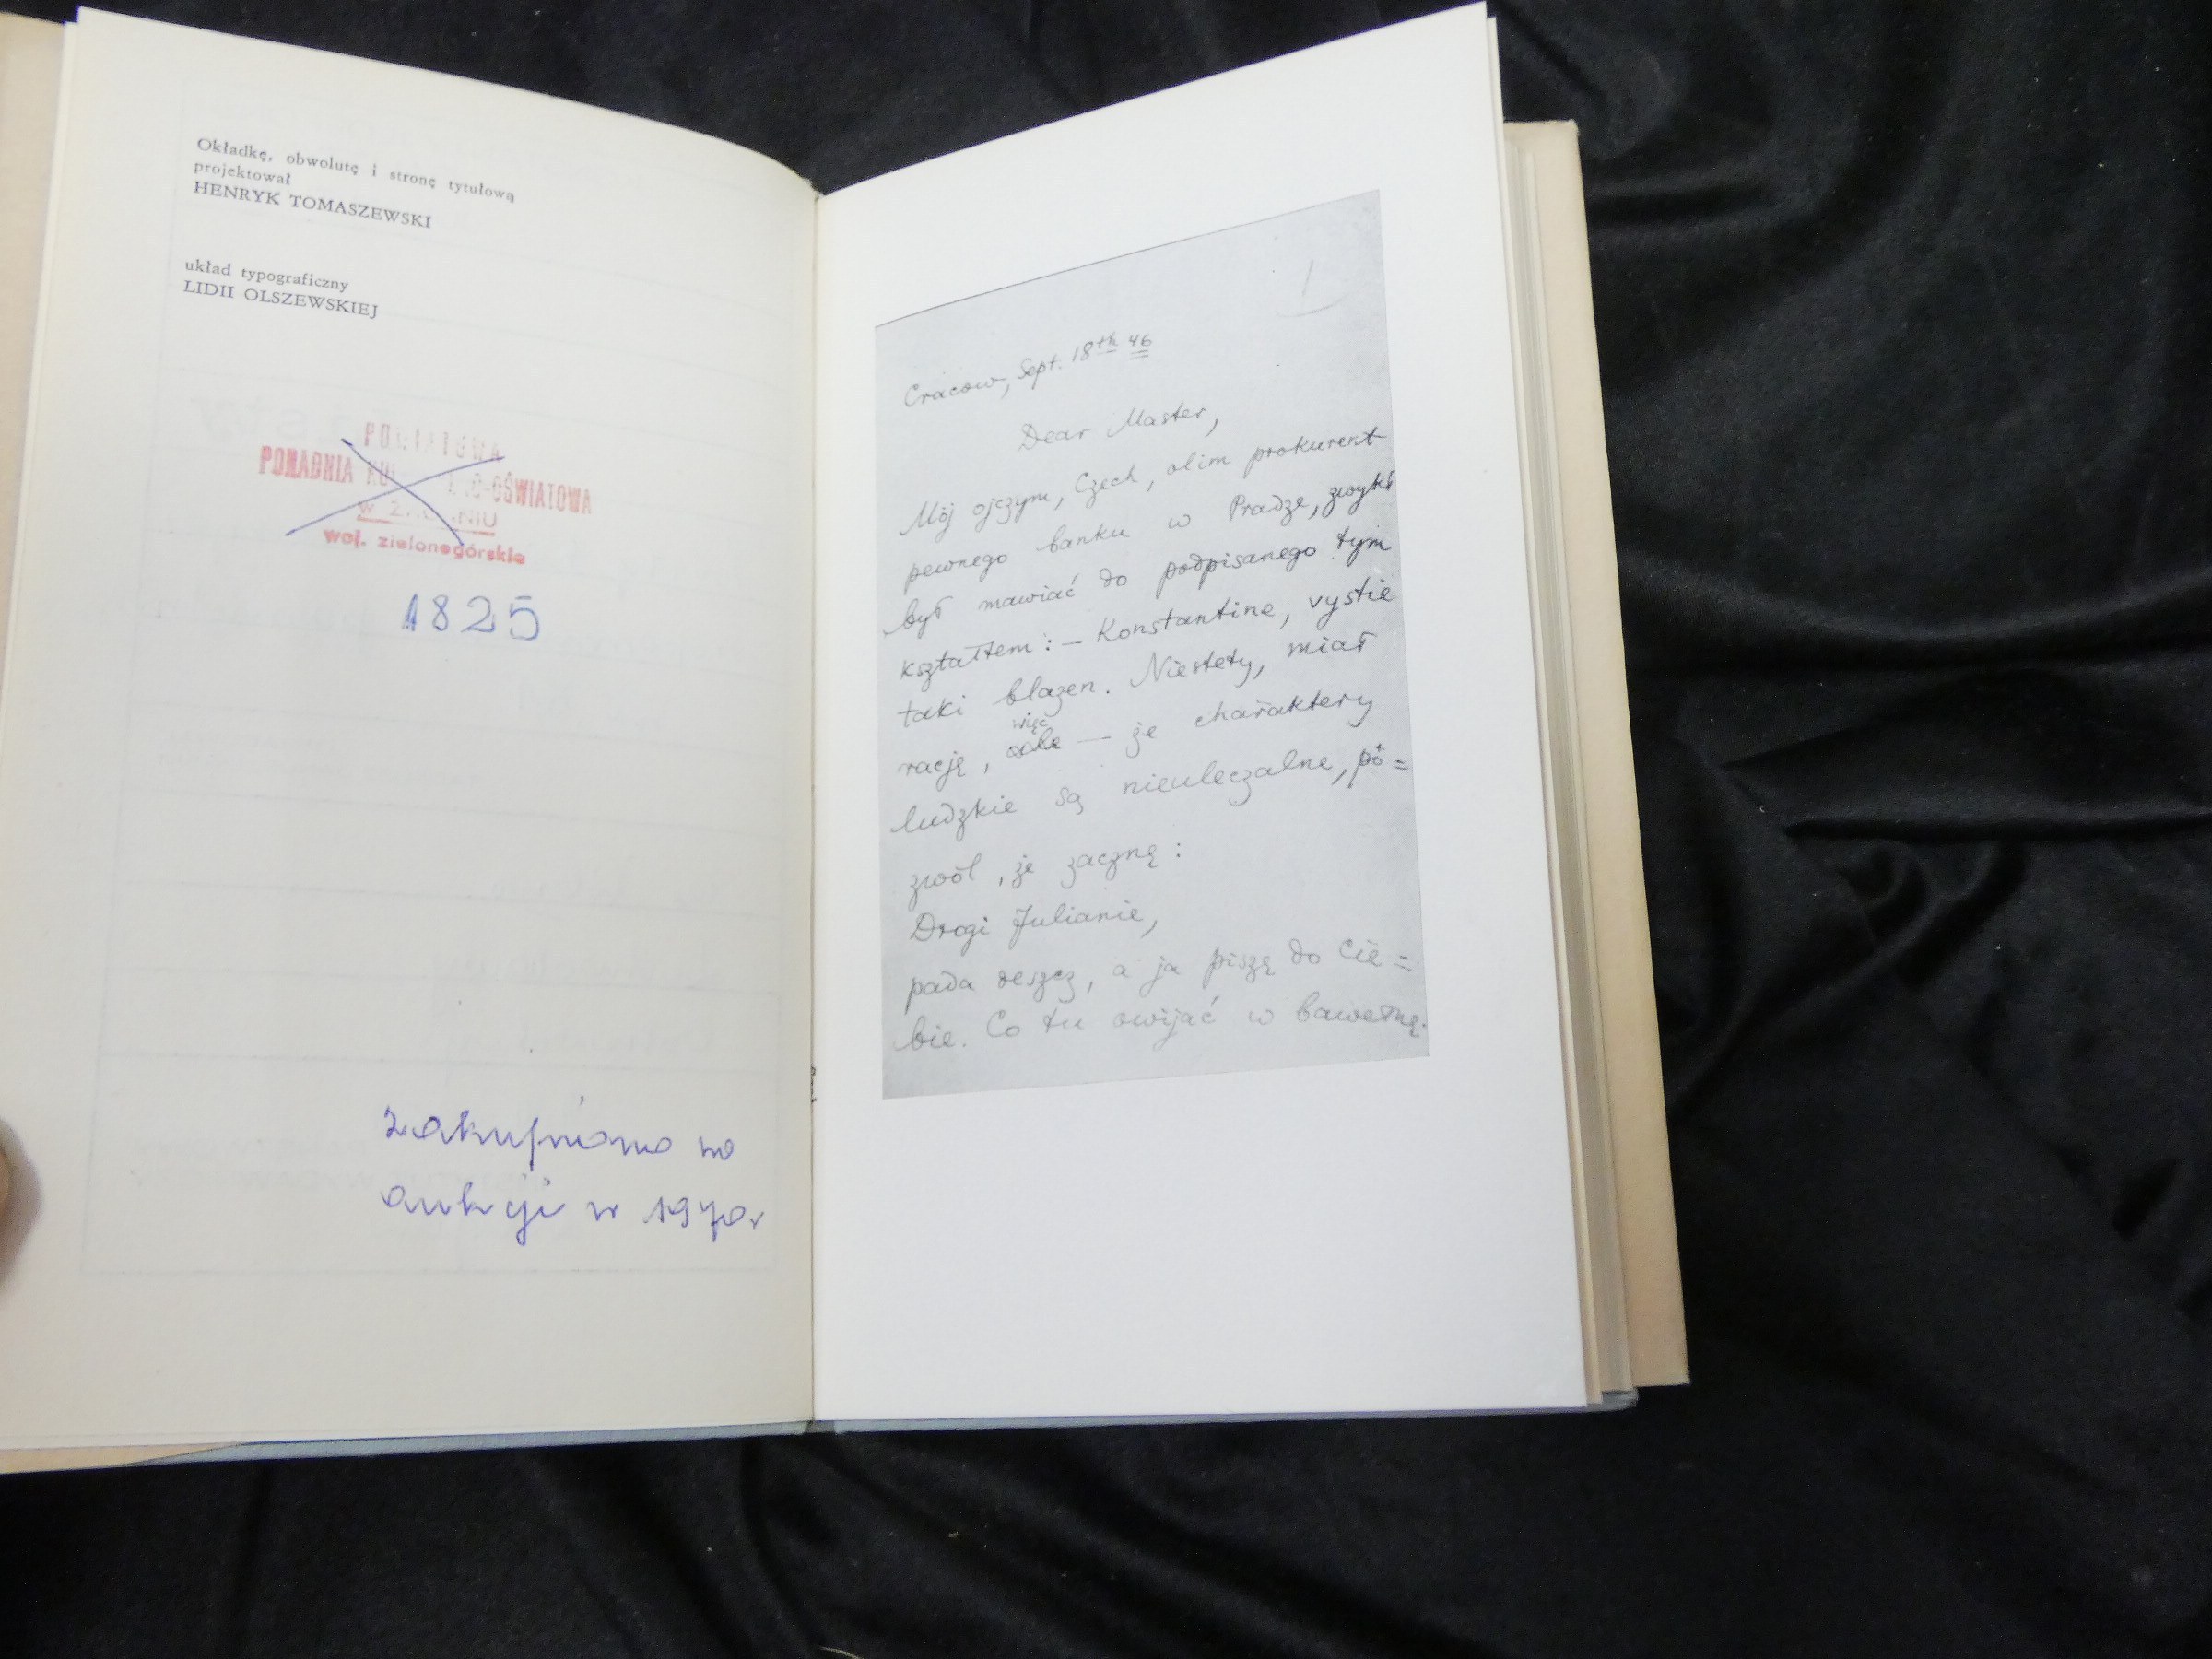 Okładkę, obwolutę i stronę tytułową
projektował
HENRYK TOMASZEWSKI
układ typograficzny
LIDII OLSZEWSKIEJ
POWIATOWA
PORADNIA KUL O-OŚWIATOWA
w Ż NIU
woj. zielonogórskie
1825
zakupiono na
aukcji w 1970r
1
Cracow, Sept. 18th 46
Dear Master,
Mój ojczym, Czech, olim prokurent
pewnego banku w Pradze, zwykł
był mawiać do podpisanego tym
kształtem: — Konstantine, vystie
taki blazen. Niestety, miał
więc
rację, — że charaktery
ludzkie są nieuleczalne, po=
zwól, że zacznę:
Drogi Julianie,
pada deszcz, a ja piszę do Cie=
bie. Co tu owijać w bawełnę.